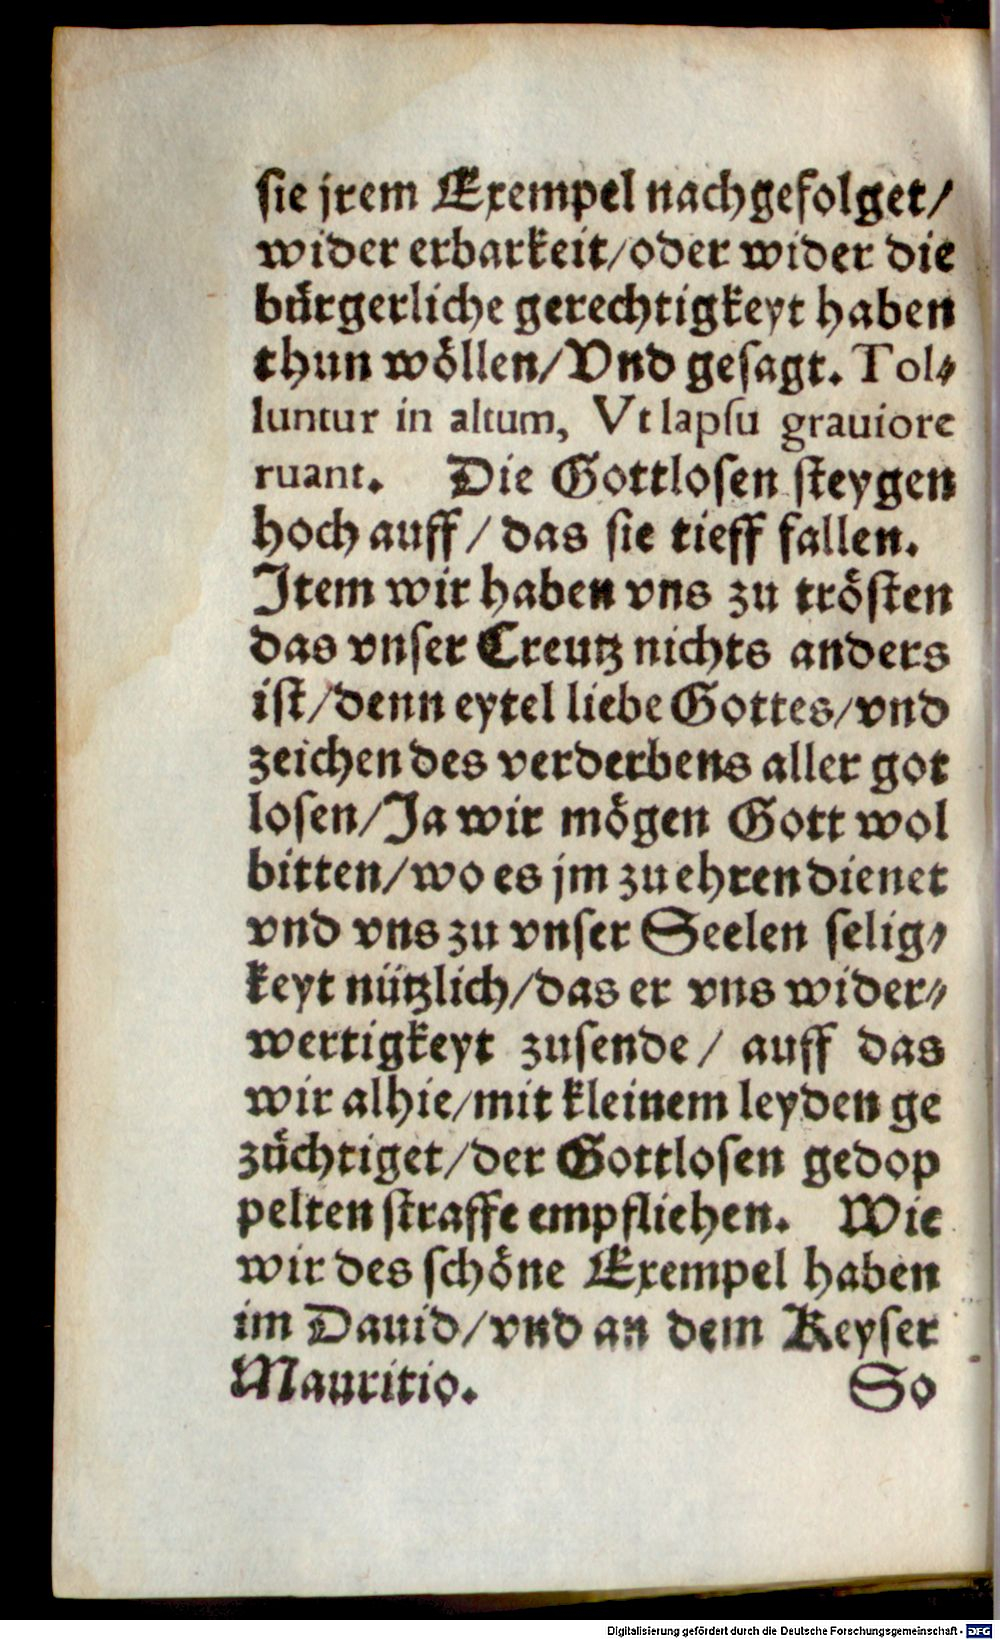 sie jrem Exempel nachgefolget/
wider erbarkeit/oder wider die
bürgerliche gerechtigkeyt haben
thun wöllen/Vnd gesagt. Tol⸗
luntur in altum, Vt lapsu grauiore
ruant. Die Gottlosen steygen
hoch auff/das sie tieff fallen.
Item wir haben vns zu trösten
das vnser Creutz nichts anders
ist/denn eytel liebe Gottes/vnd
zeichen des verderbens aller got
losen/Ja wir mögen Gott wol
bitten/wo es jm zu ehren dienet
vnd vns zu vnser Seelen selig⸗
keyt nützlich/das er vns wider⸗
wertigkeyt zusende/ auff das
wir alhie/mit kleinem leyden ge
züchtiget/der Gottlosen gedop
pelten straffe empfliehen. Wie
wir des schöne Exempel haben
im Dauid/vnd an dem Keyser
Mauritio. So
Digitalisierung gefördert durch die Deutsche Forschungsgemeinschaft - DFG